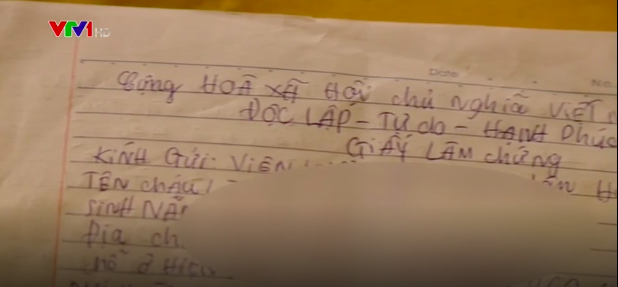 VTV1 HD
Date No.
Cộng HOÀ XÃ Hội chủ nghĩa VIỆT
ĐỘC LẬP - Tự do - HẠNH Phúc
GIẤY LÀM chứng
KÍNH Gửi: VIỆN
TÊN cháu
SINH NĂ
Địa ch